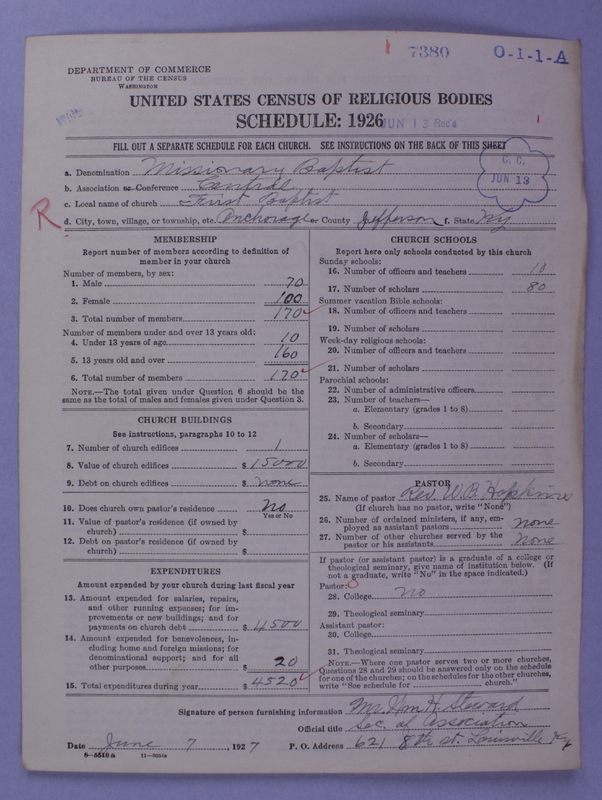 7380 O-1-1-A
DEPARTMENT OF COMMERCE
BUREAU OF THE CENSUS
WASHINGTON
UNITED STATES CENSUS OF RELIGIOUS BODIES
SCHEDULE: 1926
JUN 13 Rec'd
FILL OUT A SEPARATE SCHEDULE FOR EACH CHURCH. SEE INSTRUCTIONS ON THE BACK OF THIS SHEET
C. C.
JUN 13
a. Denomination Missionary Baptist
b. Association or Conference Central
c. Local name of church First Baptist
R d. City, town, village, or township, etc. Anchorage e. or County Jefferson f. State Ky
MEMBERSHIP
Report number of members according to definition of
member in your church
Number of members, by sex:
1. Male 70
2. Female 100
3. Total number of members 170
Number of members under and over 13 years old:
4. Under 13 years of age 10
5. 13 years old and over 160
6. Total number of members 170
NOTE.—The total given under Question 6 should be the
same as the total of males and females given under Question 3.
CHURCH BUILDINGS
See instructions, paragraphs 10 to 12
7. Number of church edifices 1
8. Value of church edifices $ 15000
9. Debt on church edifices $ none
10. Does church own pastor's residence no
Yes or No
11. Value of pastor's residence (if owned by
church) $
12. Debt on pastor's residence (if owned by
church) $
EXPENDITURES
Amount expended by your church during last fiscal year
13. Amount expended for salaries, repairs,
and other running expenses; for im-
provements or new buildings; and for
payments on church debt $ 4500
14. Amount expended for benevolences, in-
cluding home and foreign missions; for
denominational support; and for all
other purposes $ 20
15. Total expenditures during year $ 4520
CHURCH SCHOOLS
Report here only schools conducted by this church
Sunday schools:
16. Number of officers and teachers
17. Number of scholars 80
Summer vacation Bible schools:
18. Number of officers and teachers
19. Number of scholars
Week-day religious schools:
20. Number of officers and teachers
21. Number of scholars
Parochial schools:
22. Number of administrative officers
23. Number of teachers—
a. Elementary (grades 1 to 8)
b. Secondary
24. Number of scholars—
a. Elementary (grades 1 to 8)
b. Secondary
PASTOR
25. Name of pastor Rev. W. B. Hopkins
(If church has no pastor, write "None")
26. Number of ordained ministers, if any, em-
ployed as assistant pastors none
27. Number of other churches served by the
pastor or his assistants none
If pastor (or assistant pastor) is a graduate of a college or
theological seminary, give name of institution below. (If
not a graduate, write "No" in the space indicated.)
Pastor:
28. College no
29. Theological seminary
Assistant pastor:
30. College
31. Theological seminary
NOTE.—Where one pastor serves two or more churches,
Questions 28 and 29 should be answered only on the schedule
for one of the churches; on the schedules for the other churches,
write "See schedule for church."
Signature of person furnishing information Mr. Wm H. Steward
Official title Sec. of Association
Date June 7, 1927 P. O. Address 621 8th st. Louisville Ky